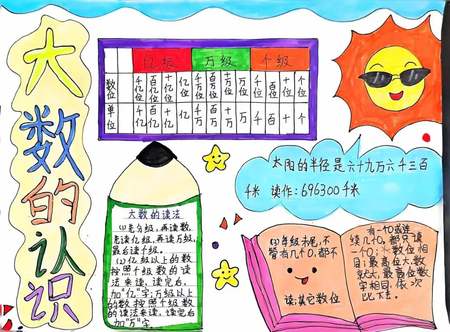 大数的认识
亿级 万级 千级
数位 千亿位 百亿位 十亿位 亿位 千万位 百万位 十万位 万位 千位 百位 十位 个位
单位 千亿 百亿 十亿 亿 千万 百万 十万 万 千 百 十 个
太阳的半径是六十九万六千三百
千米 读作:696300千米
大数的读法
(1)先分级,再读数,
先读亿级,再读万级,
最后读千级.
(2)亿级以上的数
按照千级数的读
法来读,读完后,
加"亿"字;万级以上
的数按照千级数
的读法来读,读完后
加"万"字
(3)每级末尾,不
管有几个0,都不
读;其它数位
有一个0或连
续几个0,都只读
一个0;数位相
同,最高位大数
就大,最高位数
字相同,依次
比下去.